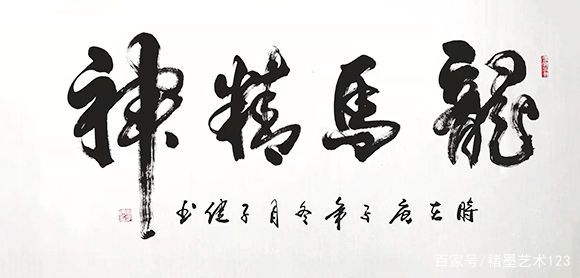 龍馬精神
時在庚子年冬月子健书
百家号/楮墨艺术123